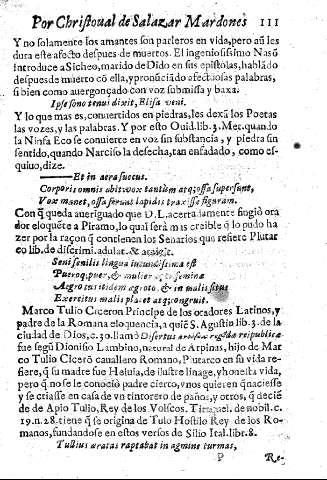 Por Christoual de Salazar Mardones 111
Y no solamente los amantes son parleros en vida, pero aũ les
dura este afecto despues de muertos. El ingeniosissimo Nasõ
introduce a Sicheo, marido de Dido en sus epistolas, hablãdo
despues de muerto cõ ella, y pronũciãdo afectuosas palabras,
si bien como auergonçado con voz submissa y baxa.
Ipse sono tenui dixit, Elisa veni.
Y lo que mas es, conuertidos en piedras, les dexã los Poetas
las vozes, y las palabras. Y por esto Ouid. lib. 3. Met. quando
la Ninfa Eco se conuierte en voz sin substancia, y piedra sin
sentido, quando Narciso la desecha, tan ensadado, como es-
quiuo, dize.
Et in aera succus.
Corporis omnis abit vox tantùm atq; ossa supersunt,
Vox manet, ossa ferunt lapidis traxisse figuram.
Con q̃ queda aueriguado que D. L. acertadamente fingiò ora
dor eloquẽte a Piramo, lo qual serà mas creible q̃ lo pudo ha
zer por la raçon q̃ contienen los Senarios que refiere Plutar
co lib. de discrimi. adulat. &
Seni senilis lingua iucundissima est
Pueroq; puer, & mulier femina
Aegrotus itidem agroto, & in malis situs
Exercitus malis placet atq; congruit.
Marco Tulio Ciceron Principe de los oradores Latinos, y
padre de la Romana eloquencia, a quiẽ S. Agustin lib. 3. de la
ciudad de Dios, c. 30. llamò Disertus artifex regẽdæ reipublicæ
fue segũ Dionisio Lambino, natural de Arpinas, hijo de Mar
co Tulio Cicerõ cauallero Romano, Plutarco en su vida re-
fiere, q̃ su madre fue Heluia, de ilustre linage, y honesta vida,
pero q̃ no se le conociò padre cierto, vnos quieren q̃ naciesse
y se criasse en casa de vn tintorero de paños, y otros, q̃ decié
de de Apio Tulio, Rey de los Volscos. Tiraquel. de nobil. c.
19. n. 28. tiene q̃ se origina de Tulo Hostilo Rey de los Ro-
manos, fundandose en estos versos de Silio Ital. libr. 8.
Tullius æratas raptabat in agmine turmas,
P Re-